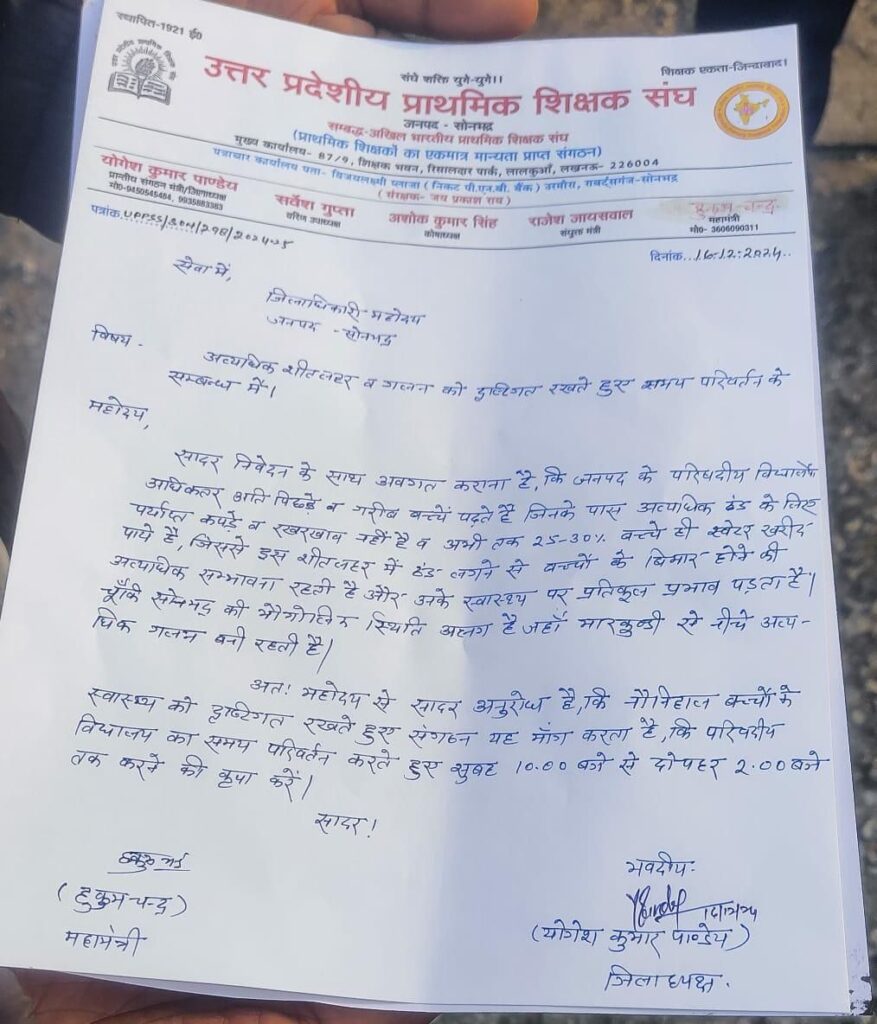 स्थापित-1921 ई0
संघे शक्ति युगे-युगे।।
शिक्षक एकता-जिन्दाबाद।
उत्तर प्रदेशीय प्राथमिक शिक्षक संघ
जनपद - सोनभद्र
सम्बद्ध-अखिल भारतीय प्राथमिक शिक्षक संघ
(प्राथमिक शिक्षकों का एकमात्र मान्यता प्राप्त संगठन)
मुख्य कार्यालय- 87/9, शिक्षक भवन, रिसालदार पार्क, लालकुआँ, लखनऊ- 226004
पत्राचार कार्यालय पता- विजयलक्ष्मी प्लाजा ( निकट पी.एन.बी. बैंक ) उरमौरा, राबर्ट्सगंज-सोनभद्र
( संरक्षक- जय प्रकाश राय )
योगेश कुमार पाण्डेय
प्रान्तीय संगठन मंत्री/जिलाध्यक्ष
मो0-9450545484, 9935883383
सर्वेश गुप्ता
वरिष्ठ उपाध्यक्ष
अशोक कुमार सिंह
कोषाध्यक्ष
राजेश जायसवाल
संयुक्त मंत्री
हुकुम चन्द्र
महामंत्री
मो0- 3606090311
पत्रांक. UPPSS/SON/298/2024-25
दिनांक...16.12.2024..
सेवा में,
जिलाधिकारी महोदय
जनपद - सोनभद्र
विषय -
अत्याधिक शीतलहर व गलन को दृष्टिगत रखते हुए समय परिवर्तन के
सम्बन्ध में।
महोदय,
सादर निवेदन के साथ अवगत कराना है, कि जनपद के परिषदीय विद्यालयों
अधिकतर अति पिछड़े व गरीब बच्चें पढ़ते है जिनके पास अत्याधिक ठंड के लिए
पर्याप्त कपड़े व रखरखाव नहीं है व अभी तक 25-30% बच्चे ही स्वेटर खरीद
पाये है, जिससे इस शीतलहर में ठंड लगने से बच्चों के बिमार होने की
अत्याधिक सम्भावना रहती है और उनके स्वास्थ्य पर प्रतिकूल प्रभाव पड़ता है।
चूँकि सोनभद्र की भौगोलिक स्थिति अलग है जहाँ मारकुण्डी से नीचे अत्य-
धिक गलन बनी रहती है।
अतः महोदय से सादर अनुरोध है, कि नौनिहाल बच्चों के
स्वास्थ्य को दृष्टिगत रखते हुए संगठन यह माँग करता है, कि परिषदीय
विद्यालय का समय परिवर्तन करते हुए सुबह 10.00 बजे से दोपहर 2.00 बजे
तक करने की कृपा करें।
सादर!
भवदीय
(हुकुम चन्द्र)
महामंत्री
(योगेश कुमार पाण्डेय)
जिलाध्यक्ष.